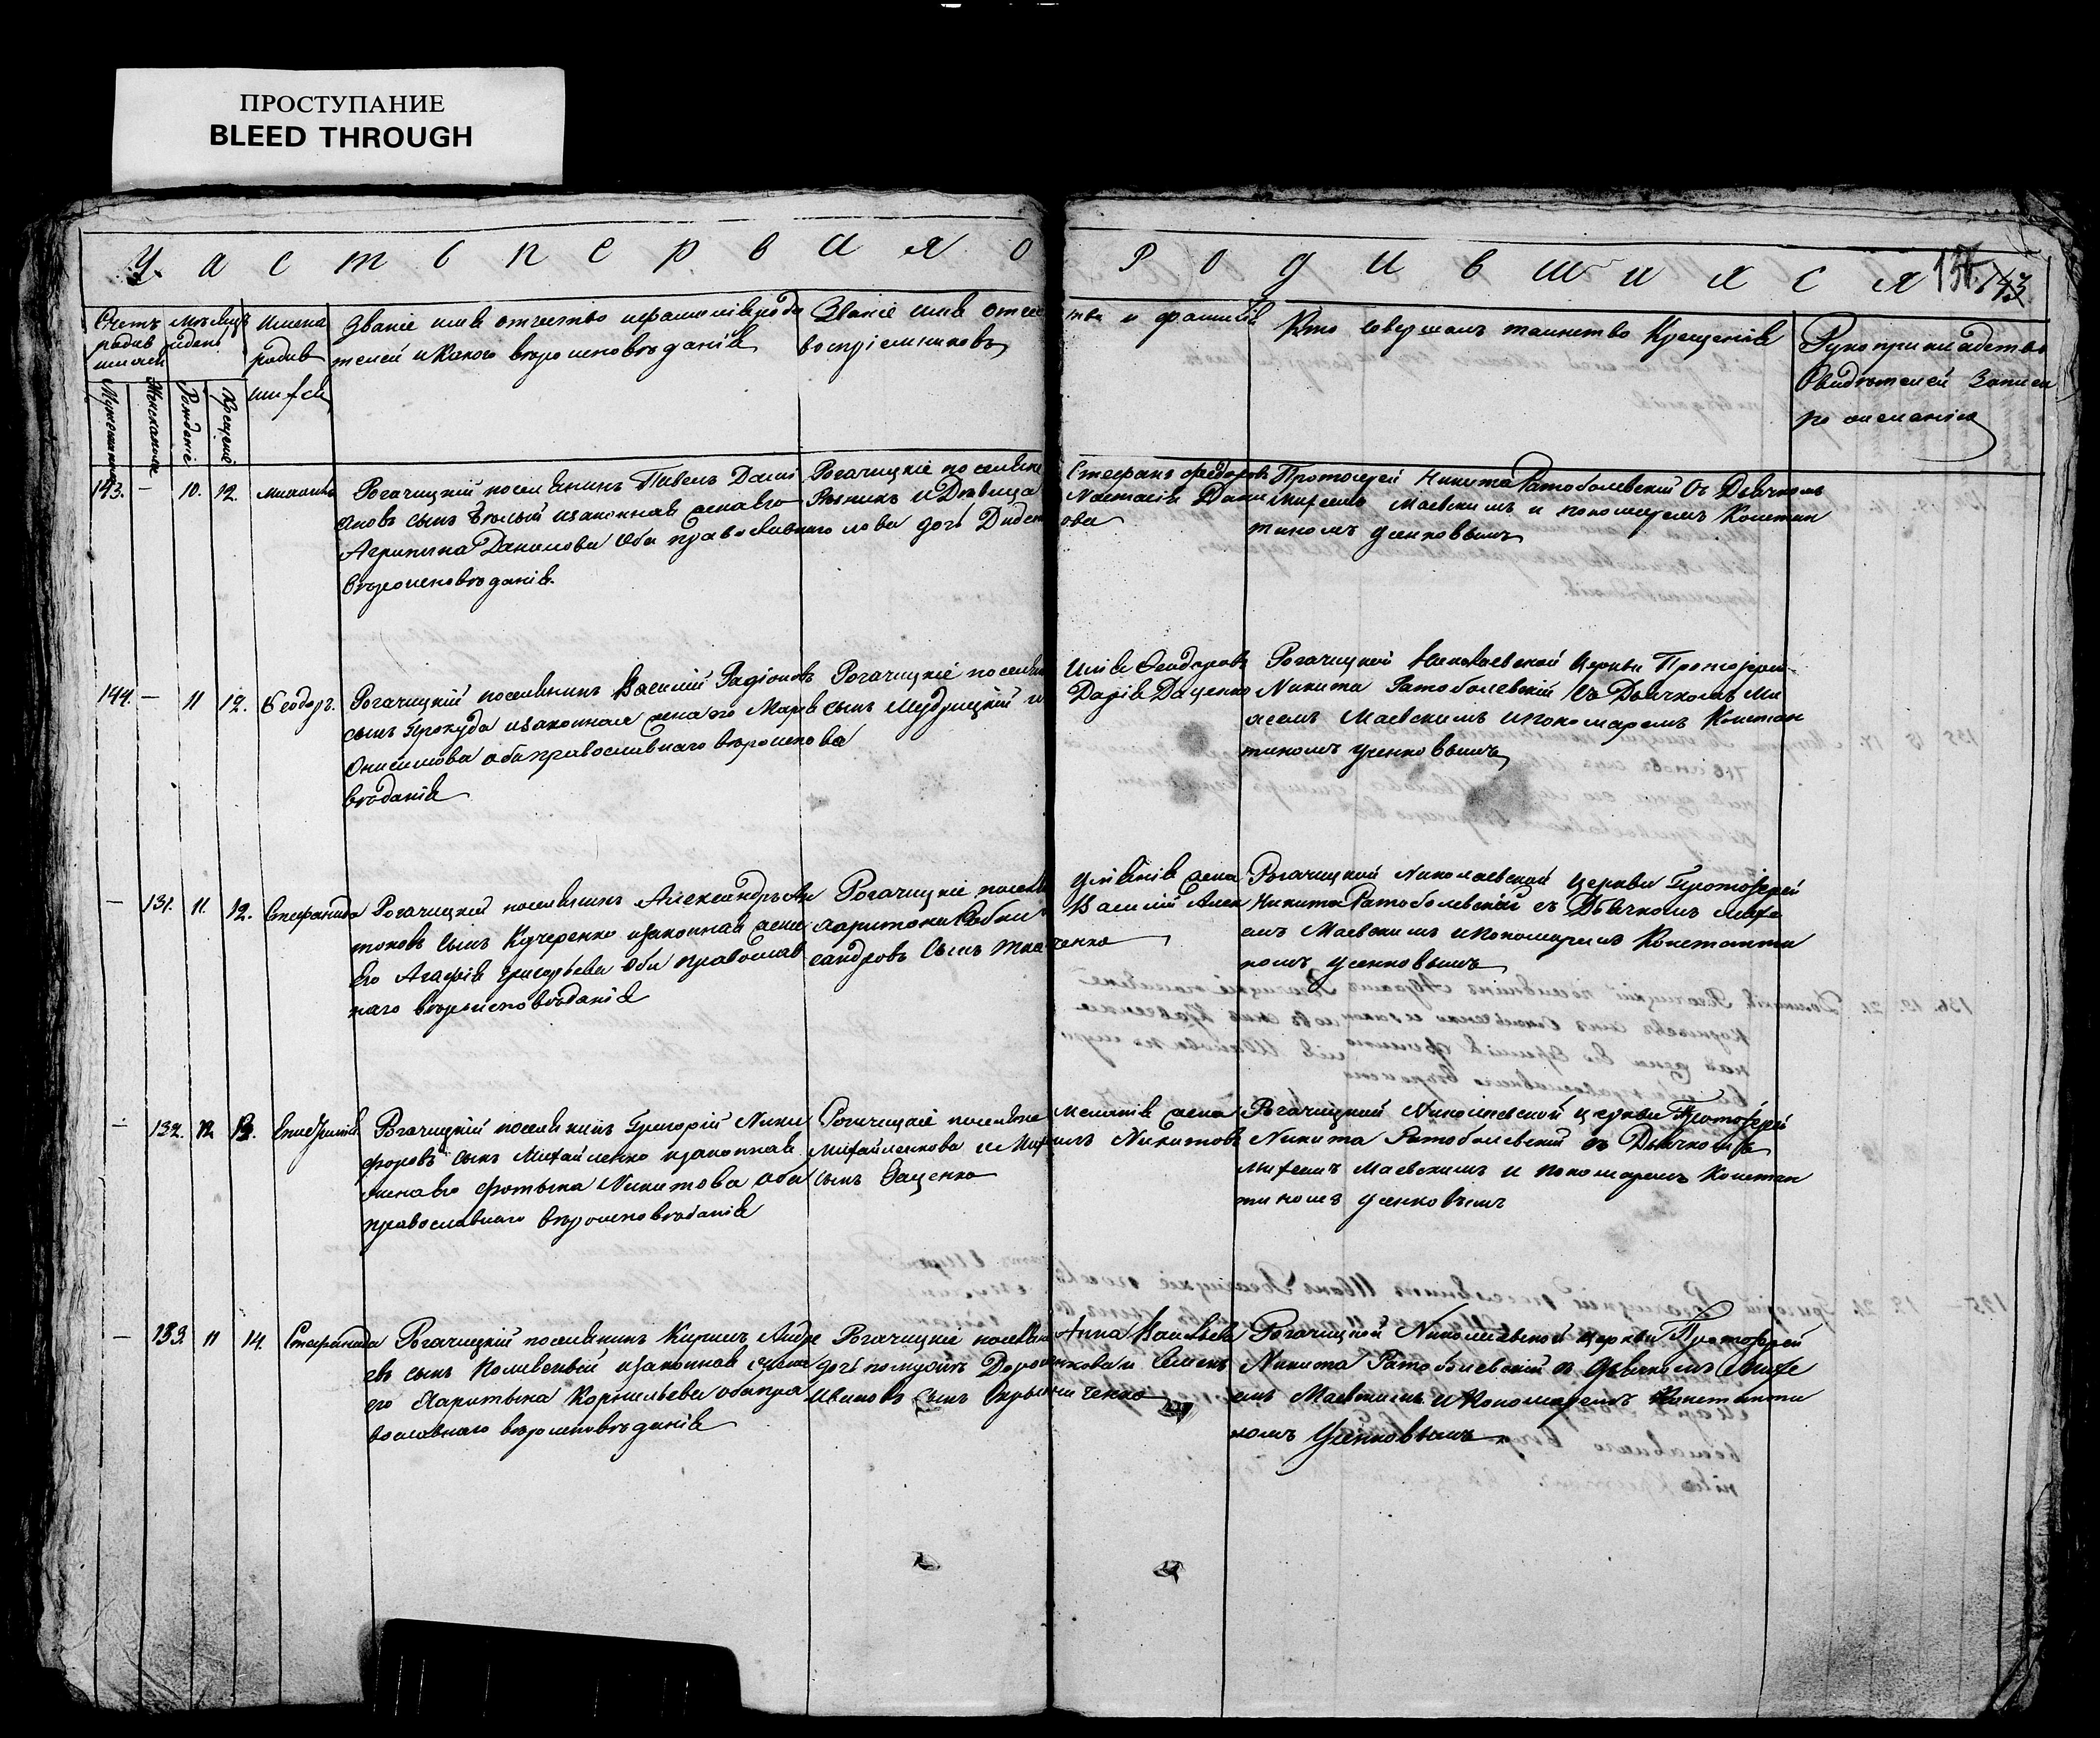 ПРОСТУПАНИЕ
BLEED THROUGH
Часть первая о
Родившихся
143
Счетъ родив шихся
Мужеска пола
Женска пола
Мѣсяцъ и день
Рожденіе
Крещеніе
Имена
родив
шихся
Званіе имя отчество и фамилія роди
телей и какого вѣроисповѣданія
Званіе имя отчес
тво и фамилія
воспріемниковъ
Кто совершалъ таинство Крещенія
Рукоприкладство
Свидѣтелей Записи
по желанію
143. — 10. 12. Михаилъ
Рогачицкій поселянинъ Павелъ Дами
ановъ сынъ Бѣлый и законная жена его
Агрипина Данилова Оба православнаго
вѣроисповѣданія.
Рогачицкіе поселяне
Стефанъ Федоровъ
и Дѣвица
Настасія Дани
лова дочь
Протоіерей Никита Ратоболевскій Съ Дьячкомъ
Михеемъ Маевскимъ и пономаремъ Констан
тиномъ Усенковымъ
144. — 11 12. Ѳеодоръ.
Рогачицкій поселянинъ Василій Радіоновъ
сынъ Прокуда и законная жена его Марѳа
Онисимова оба православнаго вѣроиспо
вѣданія
Рогачицкіе поселяне
Илія Ѳеодоровъ
сынъ Мудрицкій и
Дарія Даценкова
Рогачицкой Николаевской Церкви Протоіерей
Никита Ратоболевскій Съ Дьячкомъ Ми
хеемъ Маевскимъ и пономаремъ Констан
тиномъ Усенковымъ
— 131. 11. 12. Стефанида
Рогачицкій поселянинъ Александръ Ан
тоновъ сынъ Кучеренко и законная жена
Его Агафія Григорьева Оба православ
наго вѣроисповѣданія
Рогачицкіе поселяне
Уліянія жена
Харитона
Василій Алек
сандровъ Сынъ Ткаченко
Рогачицкой Николаевской Церкви Протоіерей
Никита Ратоболевскій съ Дьячкомъ Михе
емъ Маевскимъ и пономаремъ Константи
номъ Усенковымъ
— 132. 12 13. Епистимія
Рогачицкій поселянинъ Григорій Ники
форовъ сынъ Михайленко и законная
жена его Фотына Никитова оба
православнаго вѣроисповѣданія
Рогачицкіе поселяне
Меланія жена
Михайленкова и
Никитовъ
сынъ Ваценко
Рогачицкой Николаевской церкви Протоіерей
Никита Ратоболевскій съ Дьячкомъ
Михеемъ Маевскимъ и пономаремъ Констан
тиномъ Усенковымъ
— 133. 11 14. Стефанида
Рогачицкій поселянинъ Кирилъ Андре
евъ сынъ и законная жена
его Харитына Корнильева оба пра
вославнаго вѣроисповѣданія
Рогачицкіе поселяне
Анна Васильева
дочь помужѣ Дорошенкова и Семенъ
Ивановъ Сынъ
Рогачицкой Николаевской церкви Протоіерей
Никита Ратоболевскій съ Дьячкомъ Михе
емъ Маевскимъ и Пономаремъ Константи
номъ Усенковымъ